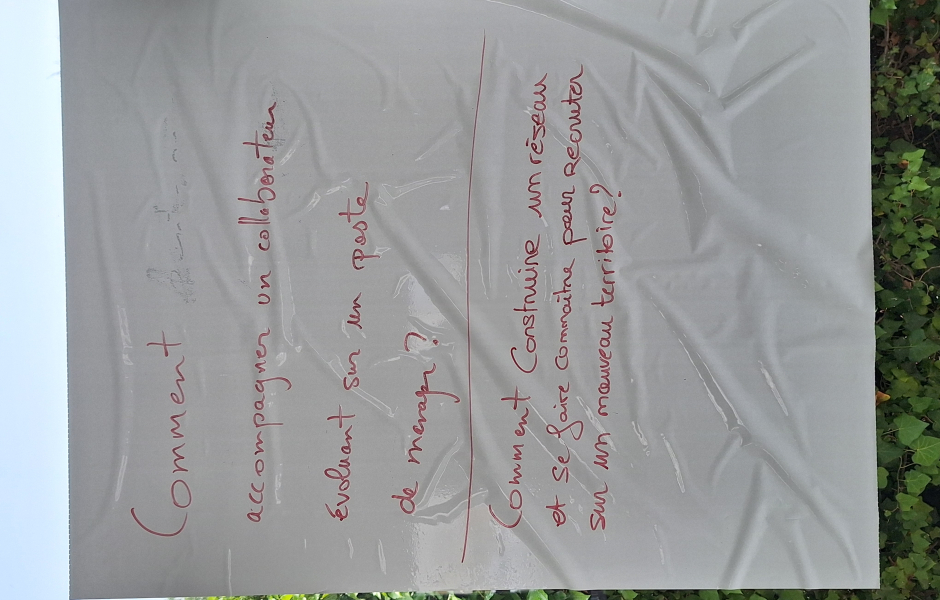 Comment
accompagner un collaborateur
évoluant sur un poste
de manager?
Comment Construire un réseau
et se faire connaître pour recruter
sur un nouveau territoire?